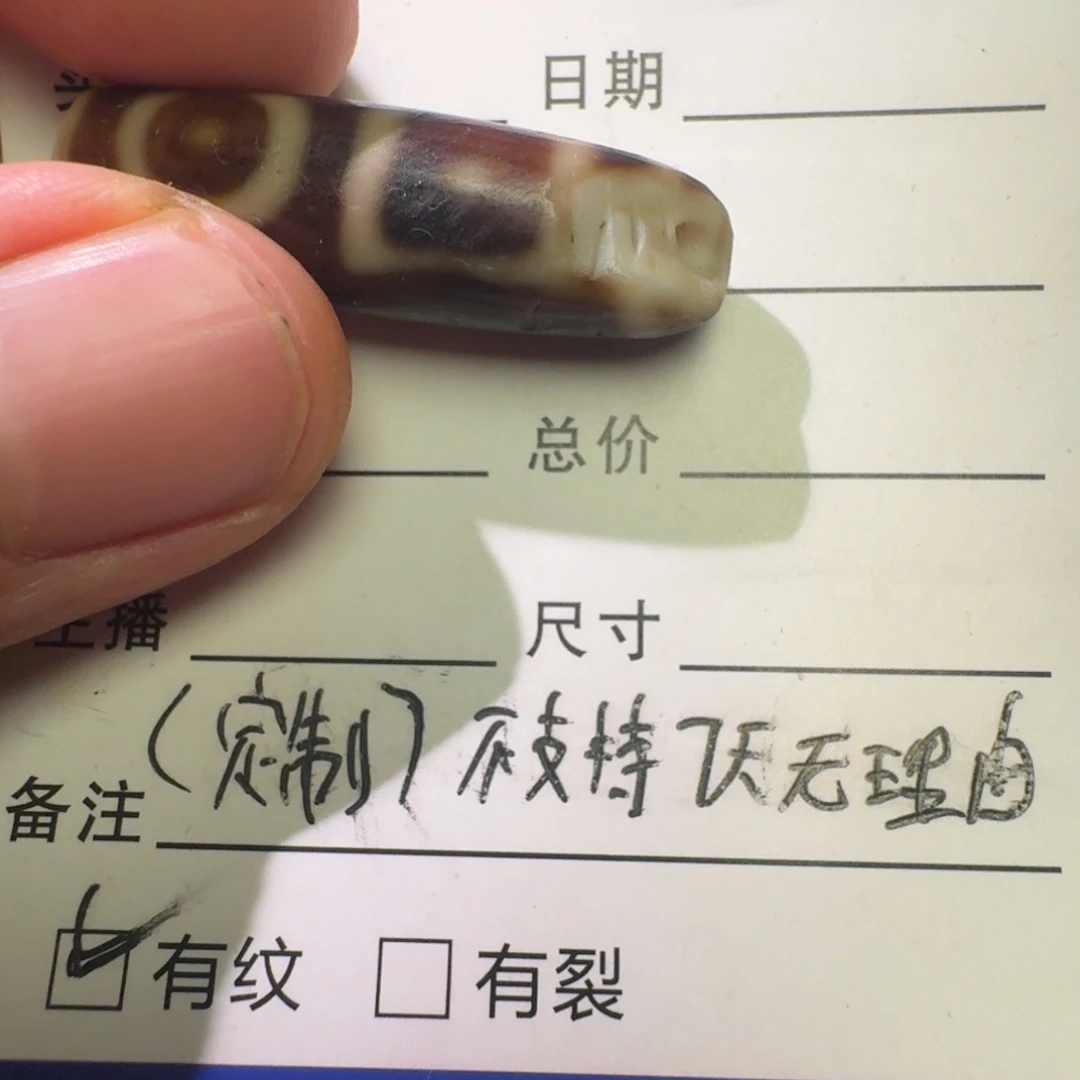 日期
总价
主播 尺寸
备注 (定制) 不支持7天无理由
有纹 有裂